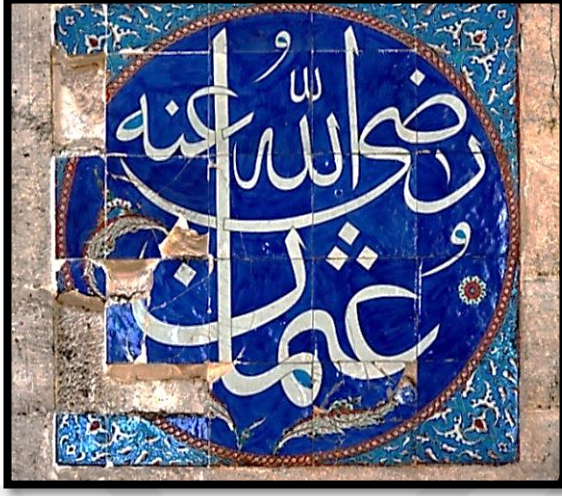 عثمان
رضي الله عنه